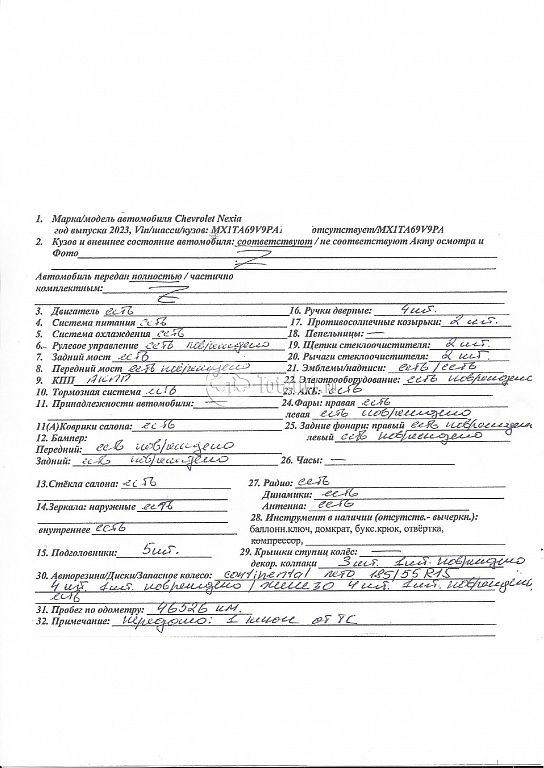 1. Марка/модель автомобиля Chevrolet Nexia
год выпуска 2023, Vin/шасси/кузов: MX1TA69V9PA отсутствует/MX1TA69V9PA
2. Кузов и внешнее состояние автомобиля: соответствуют / не соответствуют Акту осмотра и
Фото
Автомобиль передан полностью / частично
комплектным:
3. Двигатель есть
4. Система питания есть
5. Система охлаждения есть
6. Рулевое управление есть повреждено
7. Задний мост есть
8. Передний мост есть повреждено
9. КПП АКПП
10. Тормозная система есть
11. Принадлежности автомобиля:
11(А)Коврики салона: есть
12. Бампер:
Передний: есть повреждено
Задний: есть повреждено
13.Стёкла салона: есть
14.Зеркала: наружные есть
внутреннее есть
15. Подголовники: 5шт.
16. Ручки дверные: 4шт.
17. Противосолнечные козырьки: 2 шт.
18. Пепельницы: —
19. Щетки стеклоочистителя: 2 шт.
20. Рычаги стеклоочистителя: 2 шт.
21. Эмблемы/надписи: есть / есть
22. Электрооборудование: есть повреждено
23. АКБ: есть
24.Фары: правая есть
левая есть повреждено
25. Задние фонари: правый есть повреждено
левый есть повреждено
26. Часы: —
27. Радио: есть
Динамики: есть
Антенна: есть
28. Инструмент в наличии (отсутств.- вычеркн.):
баллонн.ключ, домкрат, букс.крюк, отвёртка,
компрессор,
29. Крышки ступиц колёс: —
декор. колпаки 3 шт. 1 шт. повреждено
30. Авторезина/Диски/Запасное колесо: continental лето 185/55 R15
4 шт. 1 шт. повреждено / железо 4 шт. 1 шт. повреждено
есть
31. Пробег по одометру: 46526 км.
32. Примечание: Передано: 1 ключ от ТС